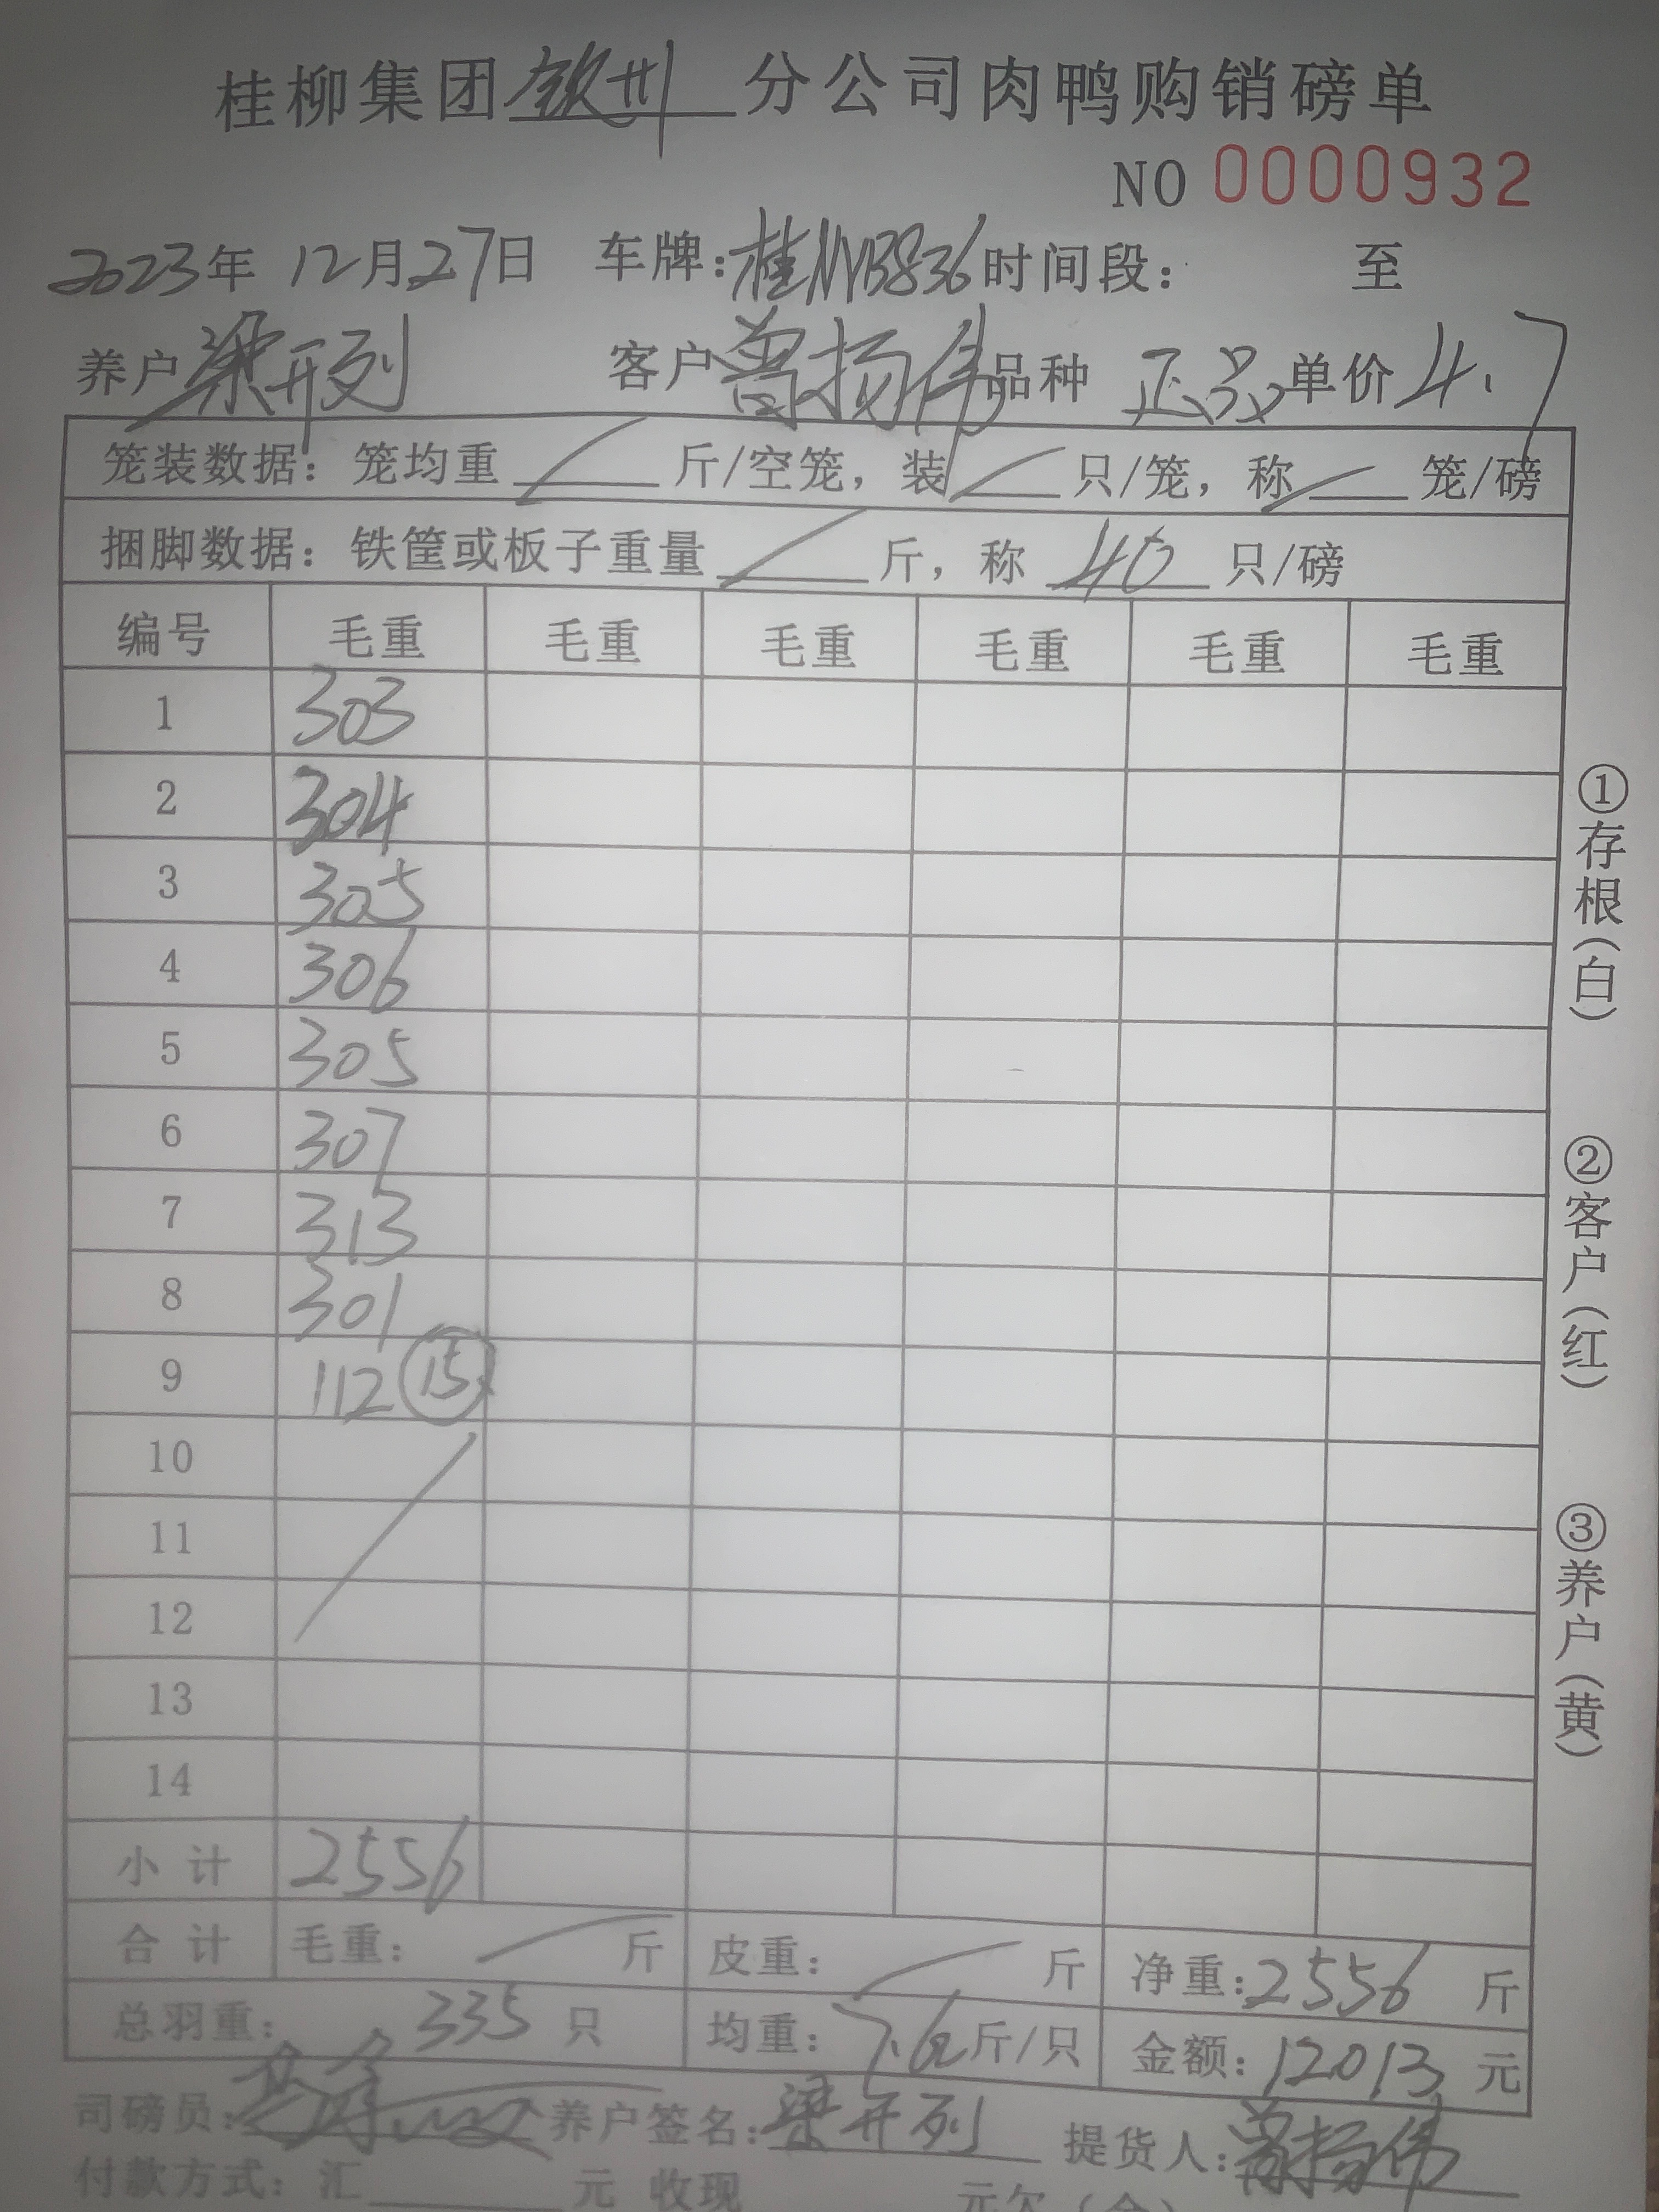 桂柳集团钦州分公司肉鸭购销磅单
NO 0000932
2023年 12月27日 车牌:桂NYB836时间段: 至
养户梁开列 客户曾扬伟品种 正品单价4.7
笼装数据:笼均重 斤/空笼,装 只/笼,称 笼/磅
捆脚数据:铁筐或板子重量 斤,称 40 只/磅
编号 毛重 毛重 毛重 毛重 毛重 毛重
1 303
2 304
3 305
4 306
5 305
6 307
7 313
8 301
9 112 15
10
11
12
13
14
小计 2556
合计 毛重: 斤 皮重: 斤 净重:2556 斤
总羽重: 335 只 均重: 7.6 斤/只 金额:12013 元
司磅员: 养户签名:梁开列 提货人:曾扬伟
付款方式:汇 元 收现 元欠(余)
①存根(白)
②客户(红)
③养户(黄)